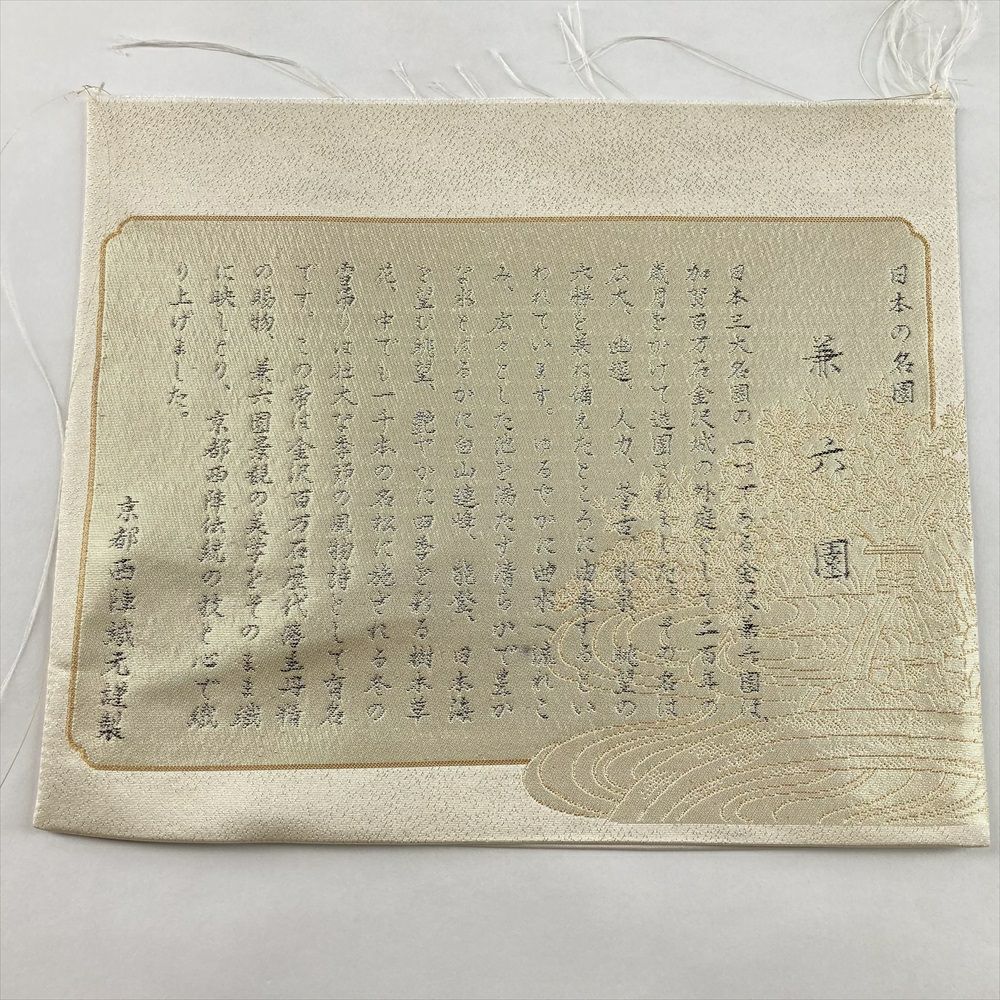 日本の名園
兼六園
日本三大名園の一つである金沢兼六園は、
加賀百万石金沢城の外庭として二百年の
歳月をかけて造園されました。その名は
広大、幽邃、人力、蒼古、水泉、眺望の
六勝を兼ね備えたところに由来するとい
われています。ゆるやかに曲水へ流れこ
み、広々とした池を満たす清らかで豊か
な水とはるかに白山連峰、能登、日本海
を望む眺望、艶やかに四季を彩る樹木草
花、中でも一千本の名松に施される冬の
雪吊りは壮大な季節の風物詩として有名
です。この帯は金沢百万石歴代藩主丹精
の賜物、兼六園景観の美学をそのまま織
に映しとり、京都西陣伝統の技と心で織
り上げました。
京都西陣織元謹製